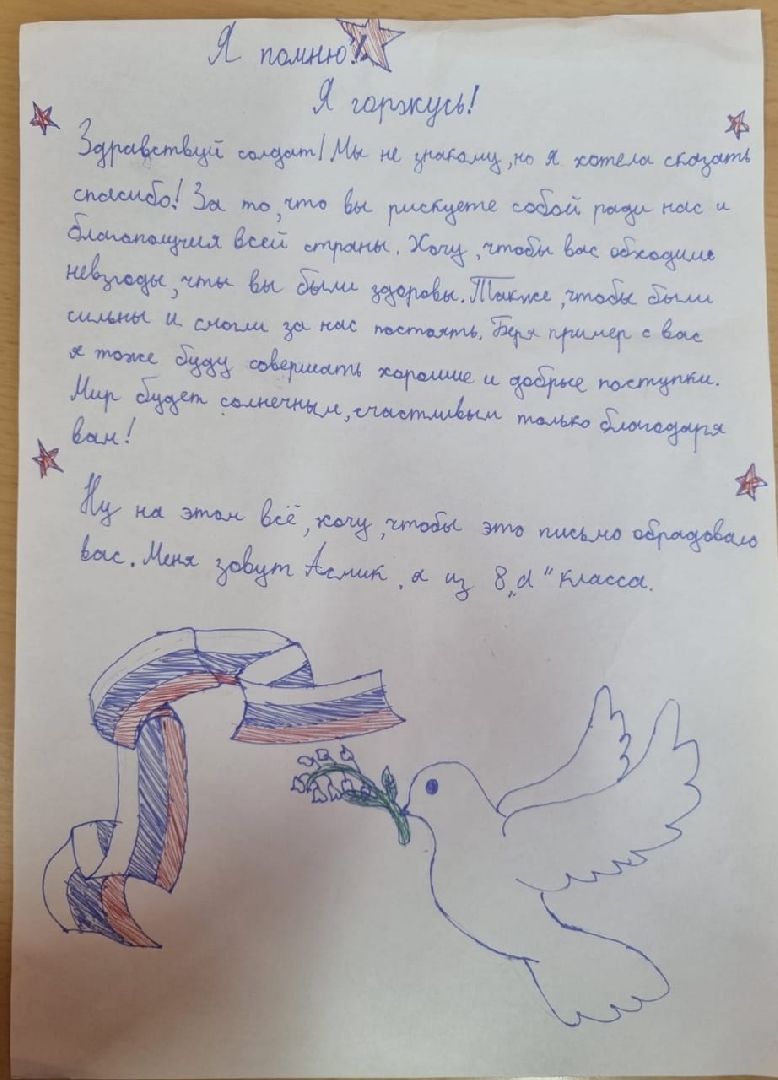 Я помню!
Я горжусь!
Здравствуй солдат! Мы не знакому, но я хотела сказать
спасибо! За то, что вы рискуете собой ради нас и
благополучия всей страны. Хочу, чтобы вас обходили
невзгоды, чты вы были здоровы. Также, чтобы были
сильны и смогли за нас постоять. Беря пример с вас
я тоже буду совершать хорошие и добрые поступки.
Мир будет солнечным, счастливым только благодаря
вам!
Ну на этом всё, хочу, чтобы это письмо обрадовало
вас. Меня зовут Асмик, я из 8 „d“ класса.